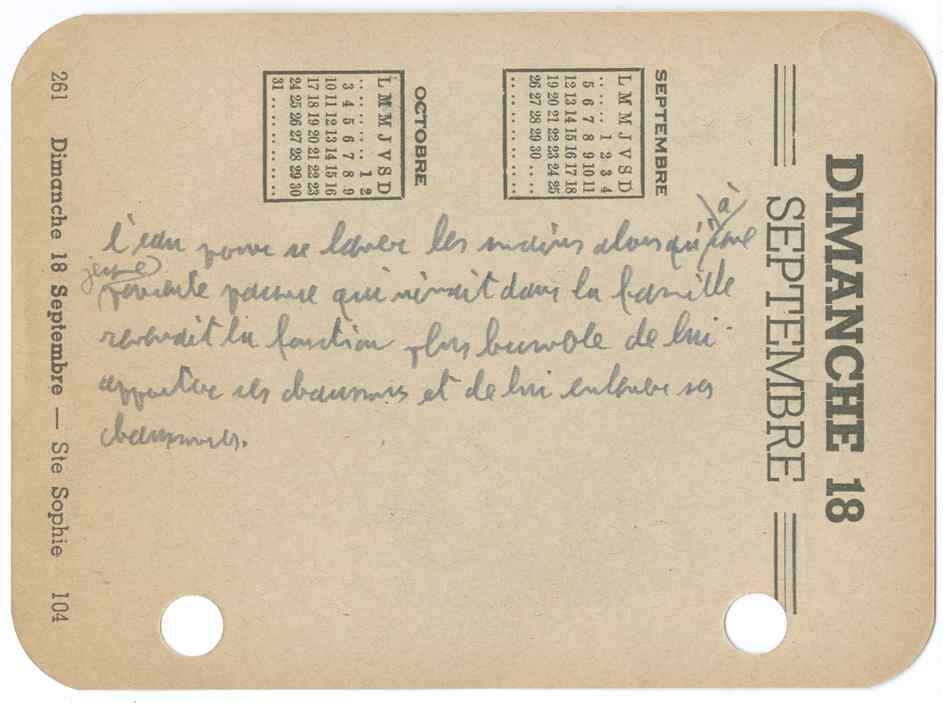 DIMANCHE 18
SEPTEMBRE
SEPTEMBRE
L M M J V S D
. . . 1 2 3 4
5 6 7 8 9 10 11
12 13 14 15 16 17 18
19 20 21 22 23 24 25
26 27 28 29 30 . .
. . . . . . .
OCTOBRE
L M M J V S D
. . . . . 1 2
3 4 5 6 7 8 9
10 11 12 13 14 15 16
17 18 19 20 21 22 23
24 25 26 27 28 29 30
31 . . . . . .
à
l'eau pour se laver les mains alors qu'une
jeune
parente pauvre qui vivait dans la famille
revenait la fonction plus de lui
apporter ses chaussons et de lui enlever ses
chaussures.
261 Dimanche 18 Septembre — Ste Sophie 104